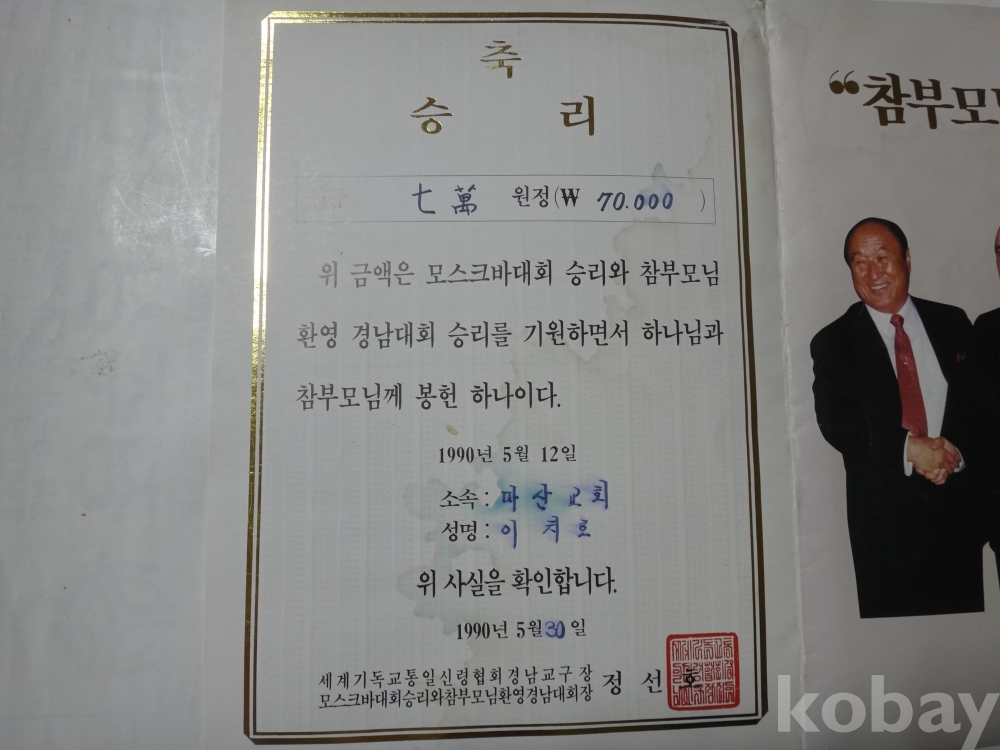 축
승 리
七萬 원정(₩ 70.000 )
위 금액은 모스크바대회 승리와 참부모님
환영 경남대회 승리를 기원하면서 하나님과
참부모님께 봉헌 하나이다.
1990년 5월 12일
소속 : 마산교회
성명 : 이치호
위 사실을 확인합니다.
1990년 5월 30일
세계기독교통일신령협회경남교구장
모스크바대회승리와참부모님환영경남대회장 정선호
“참부모
kobay